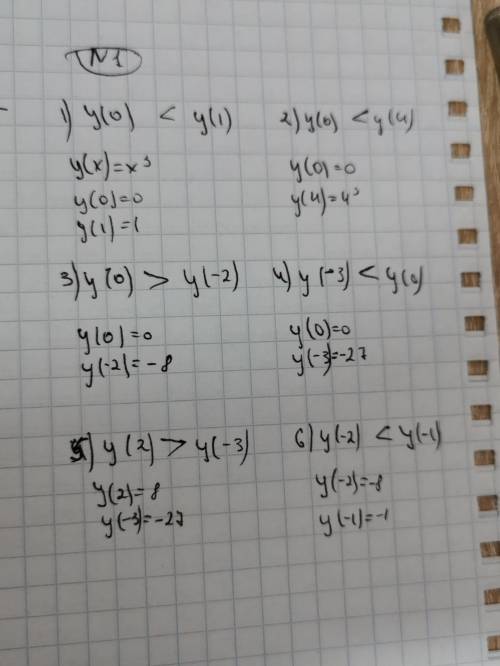 N1
1) y(0) < y(1)
y(x)=x³
y(0)=0
y(1)=1
2) y(0) < y(4)
y(0)=0
y(4)=4³
3) y(0) > y(-2)
y(0)=0
y(-2)=-8
4) y(-3) < y(0)
y(0)=0
y(-3)=-27
5) y(2) > y(-3)
y(2)=8
y(-3)=-27
6) y(-2) < y(-1)
y(-2)=-8
y(-1)=-1